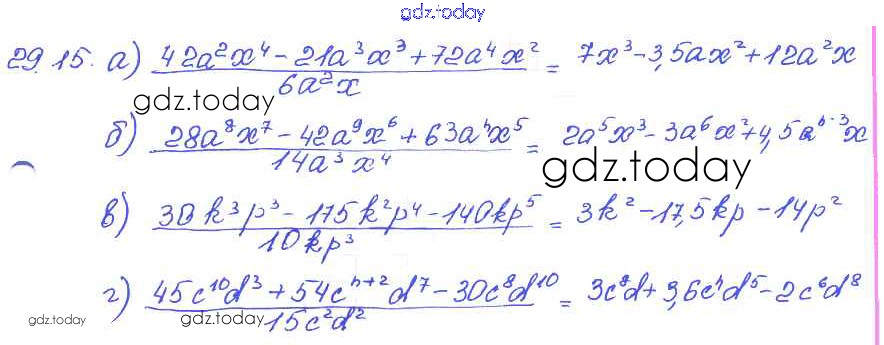 gdz.today
29.15. а) (42a²x⁴ - 21a³x³ + 72a⁴x²) / (6a²x) = 7x³ - 3,5ax² + 12a²x
gdz.today
б) (28a⁸x⁷ - 42a⁹x⁶ + 63aⁿx⁵) / (14a³x⁴) = 2a⁵x³ - 3a⁶x² + 4,5aⁿ⁻³x
gdz.today
в) (30k³p³ - 175k²p⁴ - 140kp⁵) / (10kp³) = 3k² - 17,5kp - 14p²
г) (45c¹⁰d³ + 54cⁿ⁺²d⁷ - 30c⁸d¹⁰) / (15c²d²) = 3c⁸d + 3,6cⁿd⁵ - 2c⁶d⁸
gdz.today
gdz.today